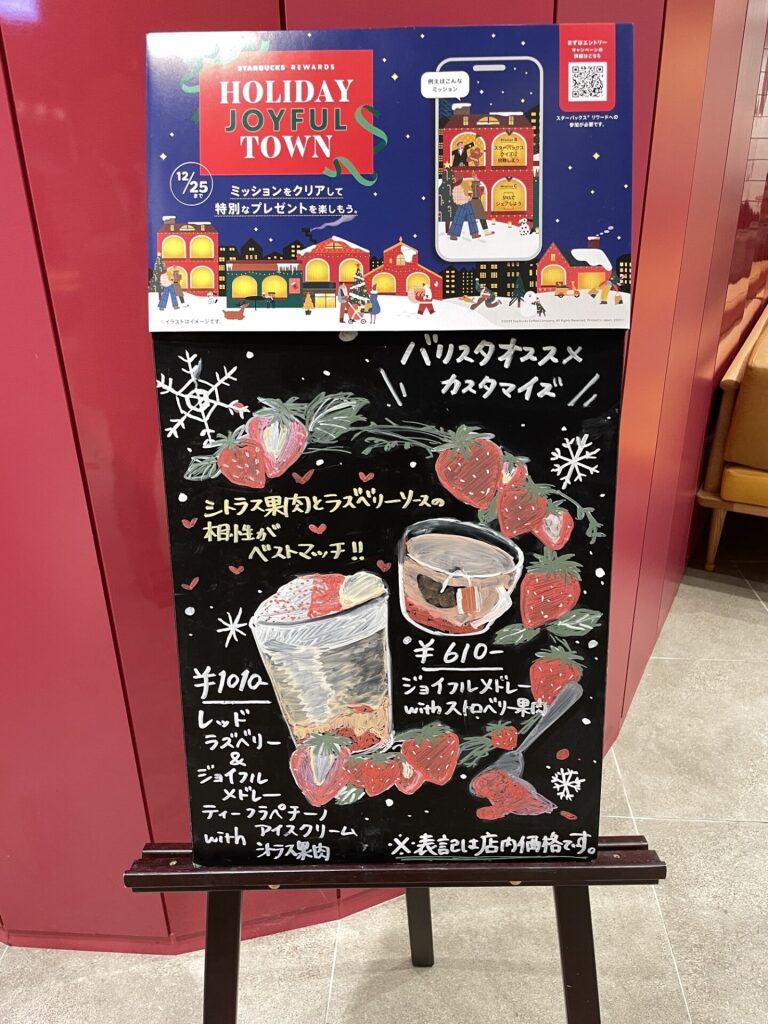 STARBUCKS REWARDS
HOLIDAY
JOYFUL
TOWN
12/25
まで
ミッションをクリアして
特別なプレゼントを楽しもう。
例えばこんな
ミッション
スターバックス
クイズに
挑戦しよう
SNSで
シェアしよう
まずはエントリー
キャンペーンの
詳細はこちら
スターバックス® リワードへの
参加が必要です。
※イラストはイメージです。
バリスタオススメ
カスタマイズ
シトラス果肉とラズベリーソースの
相性が
ベストマッチ!!
¥610-
ジョイフルメドレー
withストロベリー果肉
¥1010-
レッド
ラズベリー
&
ジョイフル
メドレー
ティーフラペチーノ
with アイスクリーム
シトラス果肉
※表記は店内価格です。